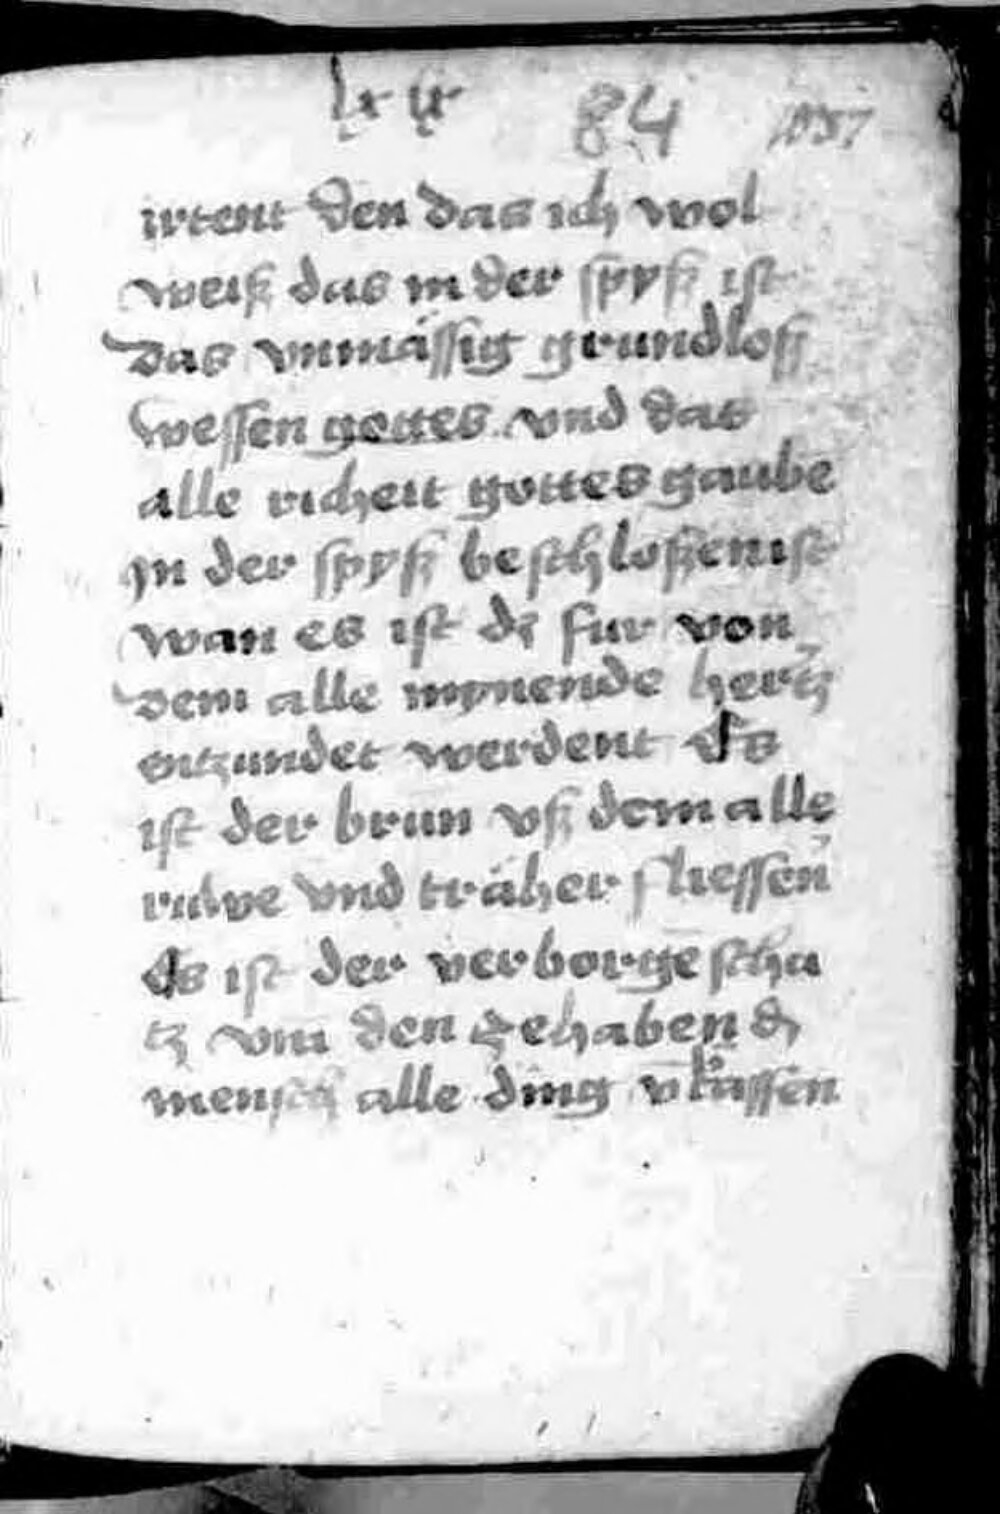 lxx ij 84
irtent den das ich wol
weiß das in der spyß ist
das vnmässig grundloß
wessen gottes vnd das
alle richeit gottes gaube
In der spyß beschloßen ist
wan es ist dz fur von
dem alle mynende hertz
entzundet werdent Es
ist der brun vß dem alle
ruwe vnd träher fliessen
Es ist der verborge scha
tz vm den ze haben d
mensch alle ding vlassen